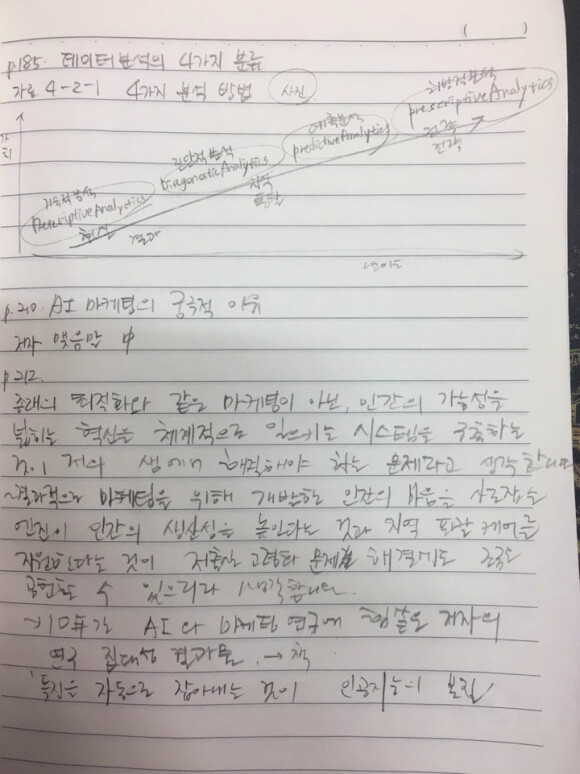 ( )
p.185. 데이터분석의 4가지 분류
자료 4-2-1 4가지 분석 방법 사진
가치
처방적분석
prescriptiveAnalytics
예측분석
predictiveAnalytics
진단적분석
DiagonosticAnalytics
기술적분석
DescriptiveAnalytics
전략
결과
난이도
p.210. AI 마케팅의 궁극적 이유
저자 맺음말 中
p.212.
종래의 최적화와 같은 마케팅이 아닌, 인간의 가능성을
넓히는 혁신을 체계적으로 일으키는 시스템을 구축하는
것이 저의 생에 해결해야 하는 문제라고 생각합니다
~결과적으로 마케팅을 위해 개발한 인간의 마음을 사로잡는
엔진이 인간의 생산성을 높인다는 것과 지역 포괄 케어를
지원한다는 것이 저출산 고령화 문제를 해결에도
공헌할 수 있으리라 생각합니다.
→ 10년간 AI와 마케팅 연구에 힘쓸 저자의
연구 집대성 결과물. → 책
'특징을 자동으로 잡아내는 것이 인공지능의 본질'